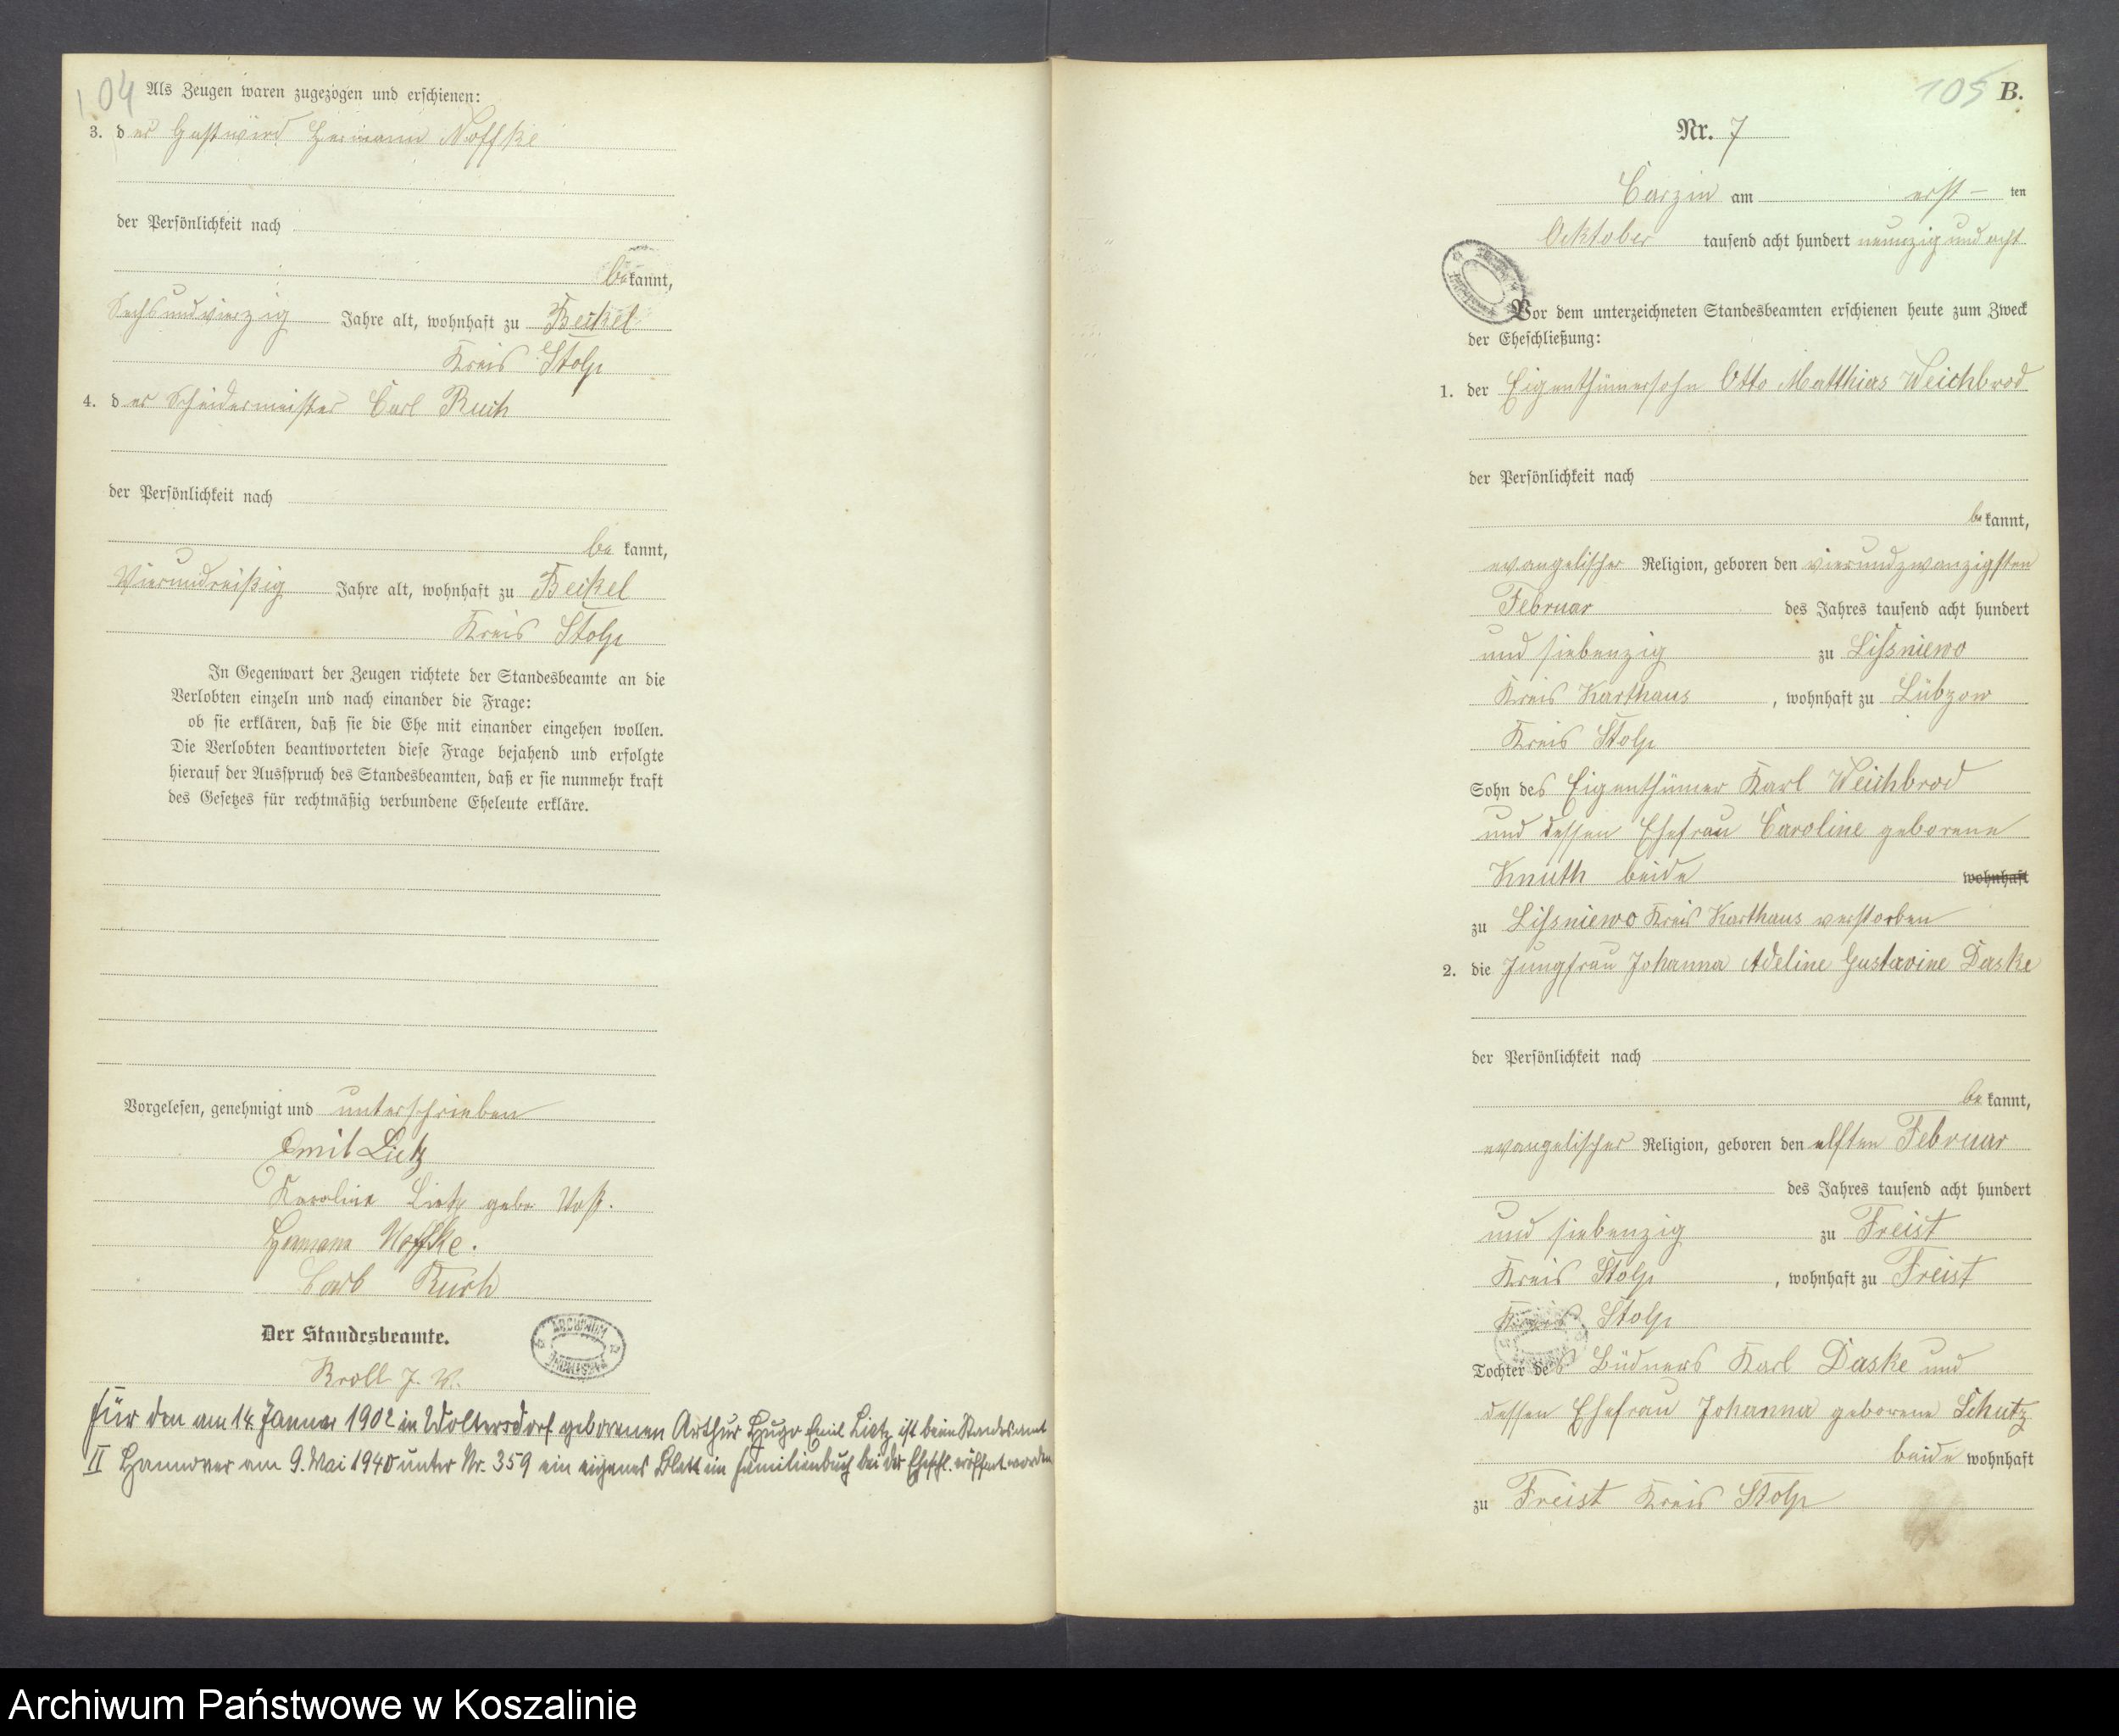 104
Als Zeugen waren zugezogen und erschienen:
3. der Gastwird Hermann Noffke
der Persönlichkeit nach
bekannt,
Sechsundvierzig Jahre alt, wohnhaft zu Beckel
Kreis Stolp
4. der Schneidermeister Carl Ruch
der Persönlichkeit nach
bekannt,
Vierundreißig Jahre alt, wohnhaft zu Beckel
Kreis Stolp
In Gegenwart der Zeugen richtete der Standesbeamte an die
Verlobten einzeln und nach einander die Frage:
ob sie erklären, daß sie die Ehe mit einander eingehen wollen.
Die Verlobten beantworteten diese Frage bejahend und erfolgte
hierauf der Ausspruch des Standesbeamten, daß er sie nunmehr kraft
des Gesetzes für rechtmäßig verbundene Eheleute erkläre.
Vorgelesen, genehmigt und unterschrieben
Emil Lietz
Karoline Lietz gebo. Voß.
Hermann Noffke.
Carl Ruch
Der Standesbeamte.
Kroll J. V.
Für den am 14. Januar 1902 in Woltersdorf geborenen Arthur Hugo Emil Lietz ist beim Standesamt
II Hannover am 9. Mai 1940 unter Nr. 359 ein eigenes Blatt im Familienbuch bei der Eheschl. eröffnet worden
105 B.
Nr. 7
Carzin am erst- ten
Ocktober tausend acht hundert neunzig und acht
Vor dem unterzeichneten Standesbeamten erschienen heute zum Zweck
der Eheschließung:
1. der Eigenthümersohn Otto Matthias Weichbrod
der Persönlichkeit nach
bekannt,
evangelischer Religion, geboren den vierundzwanzigsten
Februar des Jahres tausend acht hundert
und siebenzig zu Lissniewo
Kreis Karthaus, wohnhaft zu Lübzow
Kreis Stolp
Sohn des Eigenthümer Karl Weichbrod
und dessen Ehefrau Caroline geborene
Knuth beide wohnhaft
zu Lissniewo Kreis Karthaus verstorben
2. die Jungfrau Johanna Adeline Gustavine Daske
der Persönlichkeit nach
bekannt,
evangelischer Religion, geboren den elften Februar
des Jahres tausend acht hundert
und siebenzig zu Freist
Kreis Stolp, wohnhaft zu Freist
Kreis Stolp
Tochter des Büdners Karl Daske und
dessen Ehefrau Johanna geborene Schutz
beide wohnhaft
zu Freist Kreis Stolp
Archiwum Państwowe w Koszalinie